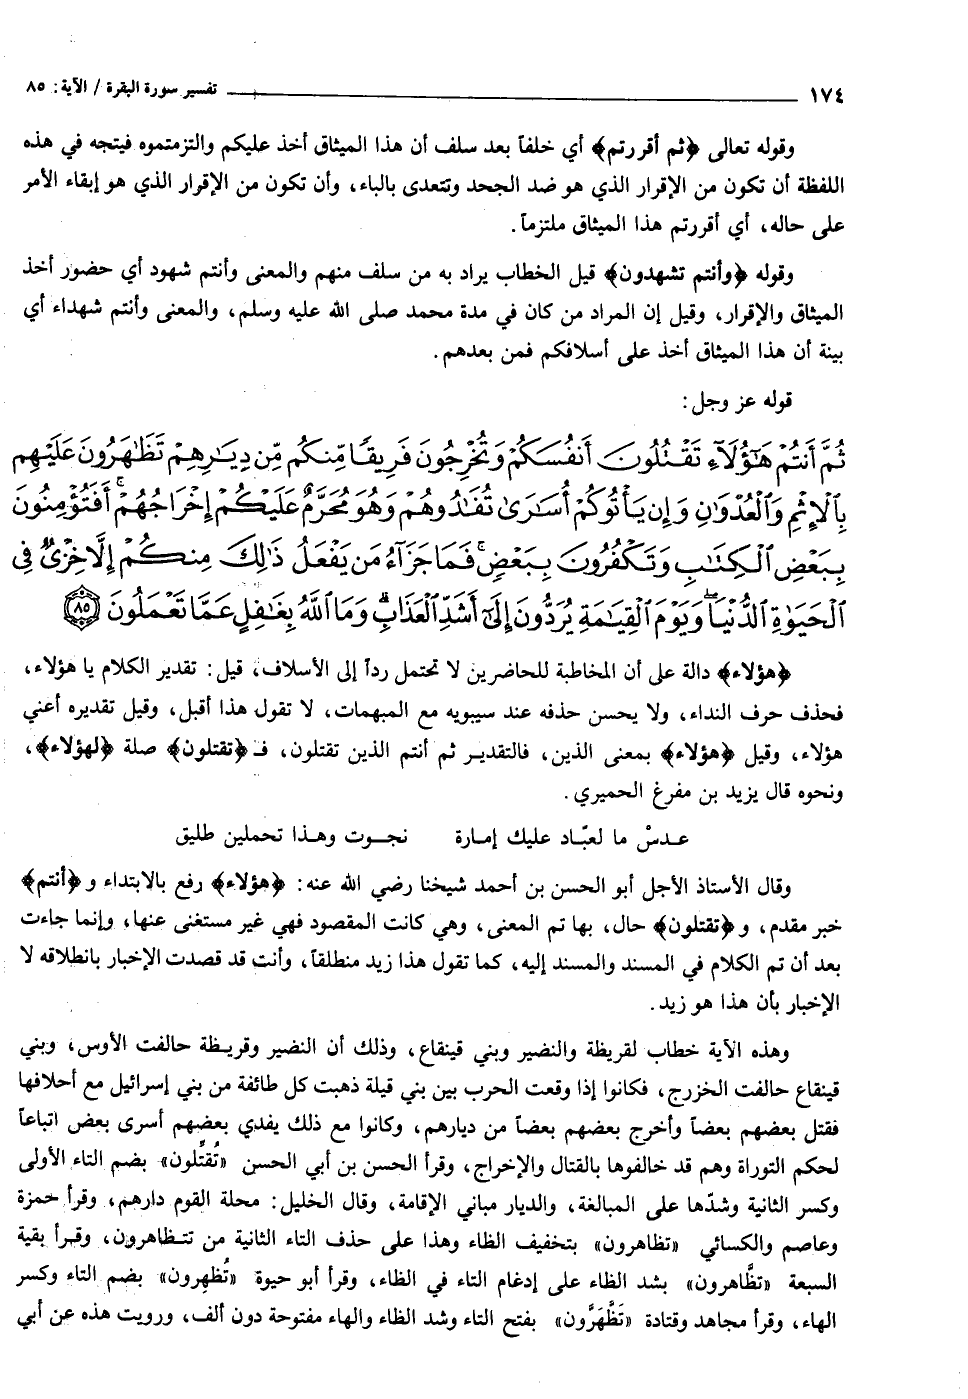 ١٧٤ تفسير سورة البقرة / الآية: ٨٥
وقوله تعالى ﴿ثم أقررتم﴾ أي خلفاً بعد سلف أن هذا الميثاق أخذ عليكم والتزمتموه فيتجه في هذه
اللفظة أن تكون من الإقرار الذي هو ضد الجحد وتتعدى بالباء، وأن تكون من الإقرار الذي هو إبقاء الأمر
على حاله، أي أقررتم هذا الميثاق ملتزماً.
وقوله ﴿وأنتم تشهدون﴾ قيل الخطاب يراد به من سلف منهم والمعنى وأنتم شهود أي حضور أخذ
الميثاق والإقرار، وقيل إن المراد من كان في مدة محمد صلى الله عليه وسلم، والمعنى وأنتم شهداء أي
بينة أن هذا الميثاق أخذ على أسلافكم فمن بعدهم.
قوله عز وجل:
ثُمَّ أَنتُمْ هَٰٓؤُلَآءِ تَقْتُلُونَ أَنفُسَكُمْ وَتُخْرِجُونَ فَرِيقًا مِّنكُم مِّن دِيَٰرِهِمْ تَظَٰهَرُونَ عَلَيْهِم
بِٱلْإِثْمِ وَٱلْعُدْوَٰنِ وَإِن يَأْتُوكُمْ أُسَٰرَىٰ تُفَٰدُوهُمْ وَهُوَ مُحَرَّمٌ عَلَيْكُمْ إِخْرَاجُهُمْ ۚ أَفَتُؤْمِنُونَ
بِبَعْضِ ٱلْكِتَٰبِ وَتَكْفُرُونَ بِبَعْضٍ ۚ فَمَا جَزَآءُ مَن يَفْعَلُ ذَٰلِكَ مِنكُمْ إِلَّا خِزْىٌ فِى
ٱلْحَيَوٰةِ ٱلدُّنْيَا ۖ وَيَوْمَ ٱلْقِيَٰمَةِ يُرَدُّونَ إِلَىٰٓ أَشَدِّ ٱلْعَذَابِ ۗ وَمَا ٱللَّهُ بِغَٰفِلٍ عَمَّا تَعْمَلُونَ ﴿٨٥﴾
﴿هؤلاء﴾ دالة على أن المخاطبة للحاضرين لا تحتمل رداً إلى الأسلاف، قيل: تقدير الكلام يا هؤلاء،
فحذف حرف النداء، ولا يحسن حذفه عند سيبويه مع المبهمات، لا تقول هذا أقبل، وقيل تقديره أعني
هؤلاء، وقيل ﴿هؤلاء﴾ بمعنى الذين، فالتقدير ثم أنتم الذين تقتلون، فـ ﴿تقتلون﴾ صلة ﴿لهؤلاء﴾،
ونحوه قال يزيد بن مفرغ الحميري.
عـدسْ ما لعبّـاد عليك إمـارة نجـوت وهـذا تحملين طليق
وقال الأستاذ الأجل أبو الحسن بن أحمد شيخنا رضي الله عنه: ﴿هؤلاء﴾ رفع بالابتداء و ﴿أنتم﴾
خبر مقدم، و ﴿تقتلون﴾ حال، بها تم المعنى، وهي كانت المقصود فهي غير مستغنى عنها، وإنما جاءت
بعد أن تم الكلام في المسند والمسند إليه، كما تقول هذا زيد منطلقاً، وأنت قد قصدت الإخبار بانطلاقه لا
الإخبار بأن هذا هو زيد.
وهذه الآية خطاب لقريظة والنضير وبني قينقاع، وذلك أن النضير وقريظة حالفت الأوس، وبني
قينقاع حالفت الخزرج، فكانوا إذا وقعت الحرب بين بني قيلة ذهبت كل طائفة من بني إسرائيل مع أحلافها
فقتل بعضهم بعضاً وأخرج بعضهم بعضاً من ديارهم، وكانوا مع ذلك يفدي بعضهم أسرى بعض اتباعاً
لحكم التوراة وهم قد خالفوها بالقتال والإخراج، وقرأ الحسن بن أبي الحسن «تُقتِّلون» بضم التاء الأولى
وكسر الثانية وشدّها على المبالغة، والديار مباني الإقامة، وقال الخليل: محلة القوم دارهم، وقرأ حمزة
وعاصم والكسائي «تظاهرون» بتخفيف الظاء وهذا على حذف التاء الثانية من تتـظاهرون، وقـرأ بقية
السبعة «تظَّاهرون» بشد الظاء على إدغام التاء في الظاء، وقرأ أبو حيوة «تُظهِرون» بضم التاء وكسر
الهاء، وقرأ مجاهد وقتادة «تَظَّهَرَّون» بفتح التاء وشد الظاء والهاء مفتوحة دون ألف، ورويت هذه عن أبي